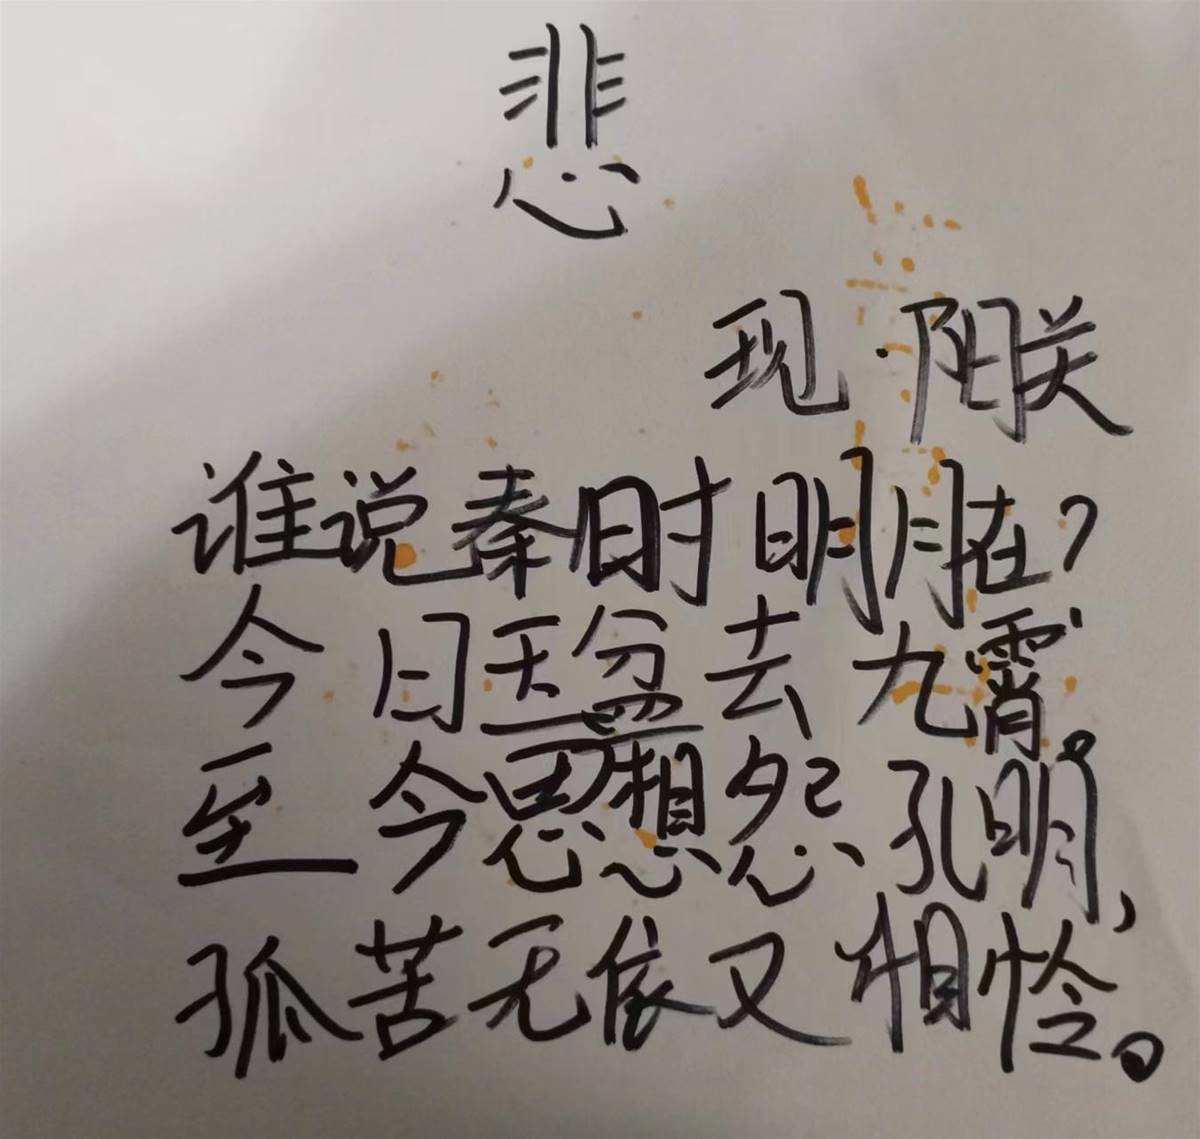 悲
现·阳朕
谁说秦时明月在?
今日天盆去九霄。
至今思想怨孔明,
孤苦无依又相怜。